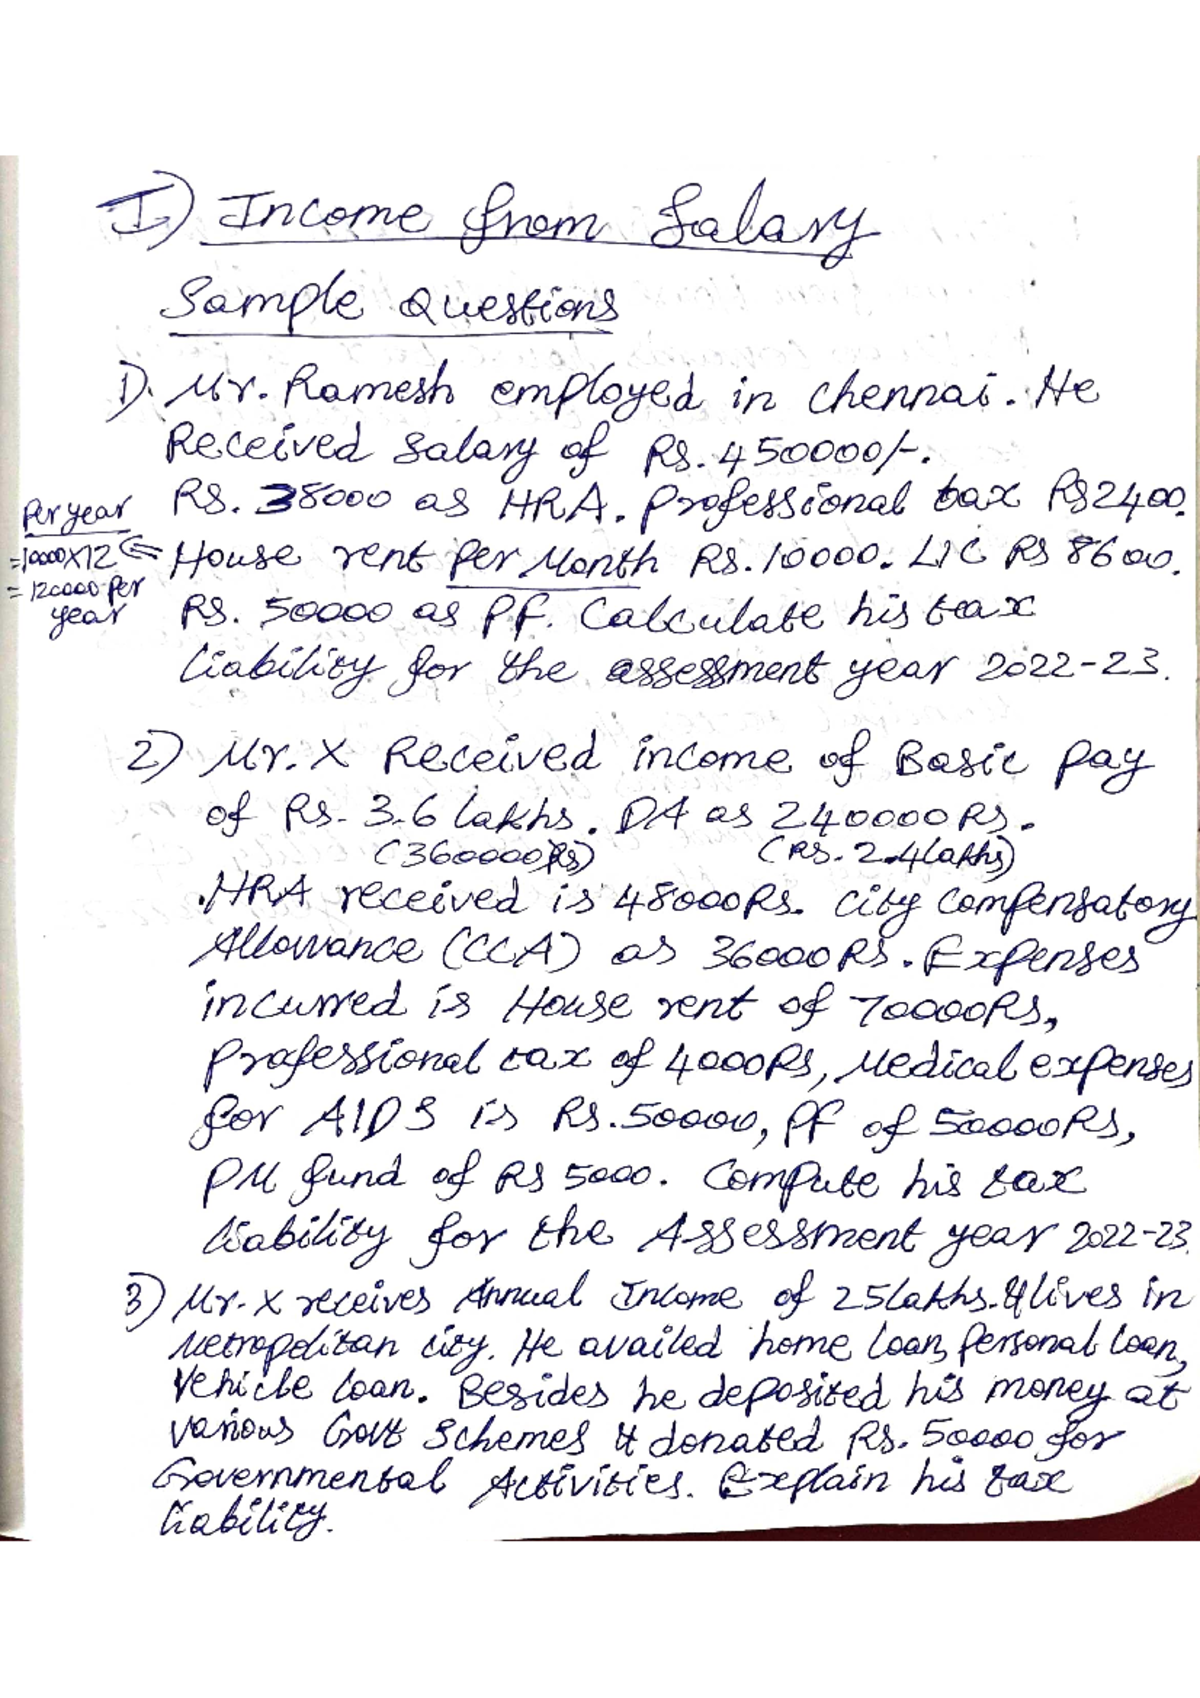 I) Income from Salary
Sample Questions
1). Mr. Ramesh employed in chennai. He
Received salary of Rs. 450000/-.
Rs. 38000 as HRA. Professional tax Rs 2400.
Per year
=10000X12 <= House rent Per Month Rs. 10000. LIC Rs 8600.
= 120000 Per
year
Rs. 50000 as PF. Calculate his tax
liability for the assessment year 2022-23.
2) Mr. X Received income of Basic Pay
of Rs. 3.6 lakhs. DA as 240000 Rs.
(360000 Rs) (Rs. 2.4 lakhs)
.HRA received is 48000 Rs. City Compensatory
Allowance (CCA) as 36000 Rs. Expenses
incurred is House rent of 70000 Rs,
Professional tax of 4000 Rs, Medical expenses
for AIDS is Rs. 50000, PF of 50000 Rs,
PM fund of Rs 5000. Compute his tax
liability for the Assessment year 2022-23.
3) Mr. X receives Annual Income of 25 Lakhs. & lives in
Metropolitan city. He availed home loan, Personal loan,
Vehicle loan. Besides he deposited his money at
various Govt Schemes & donated Rs. 50000 for
Governmental Activities. Explain his tax
liability.